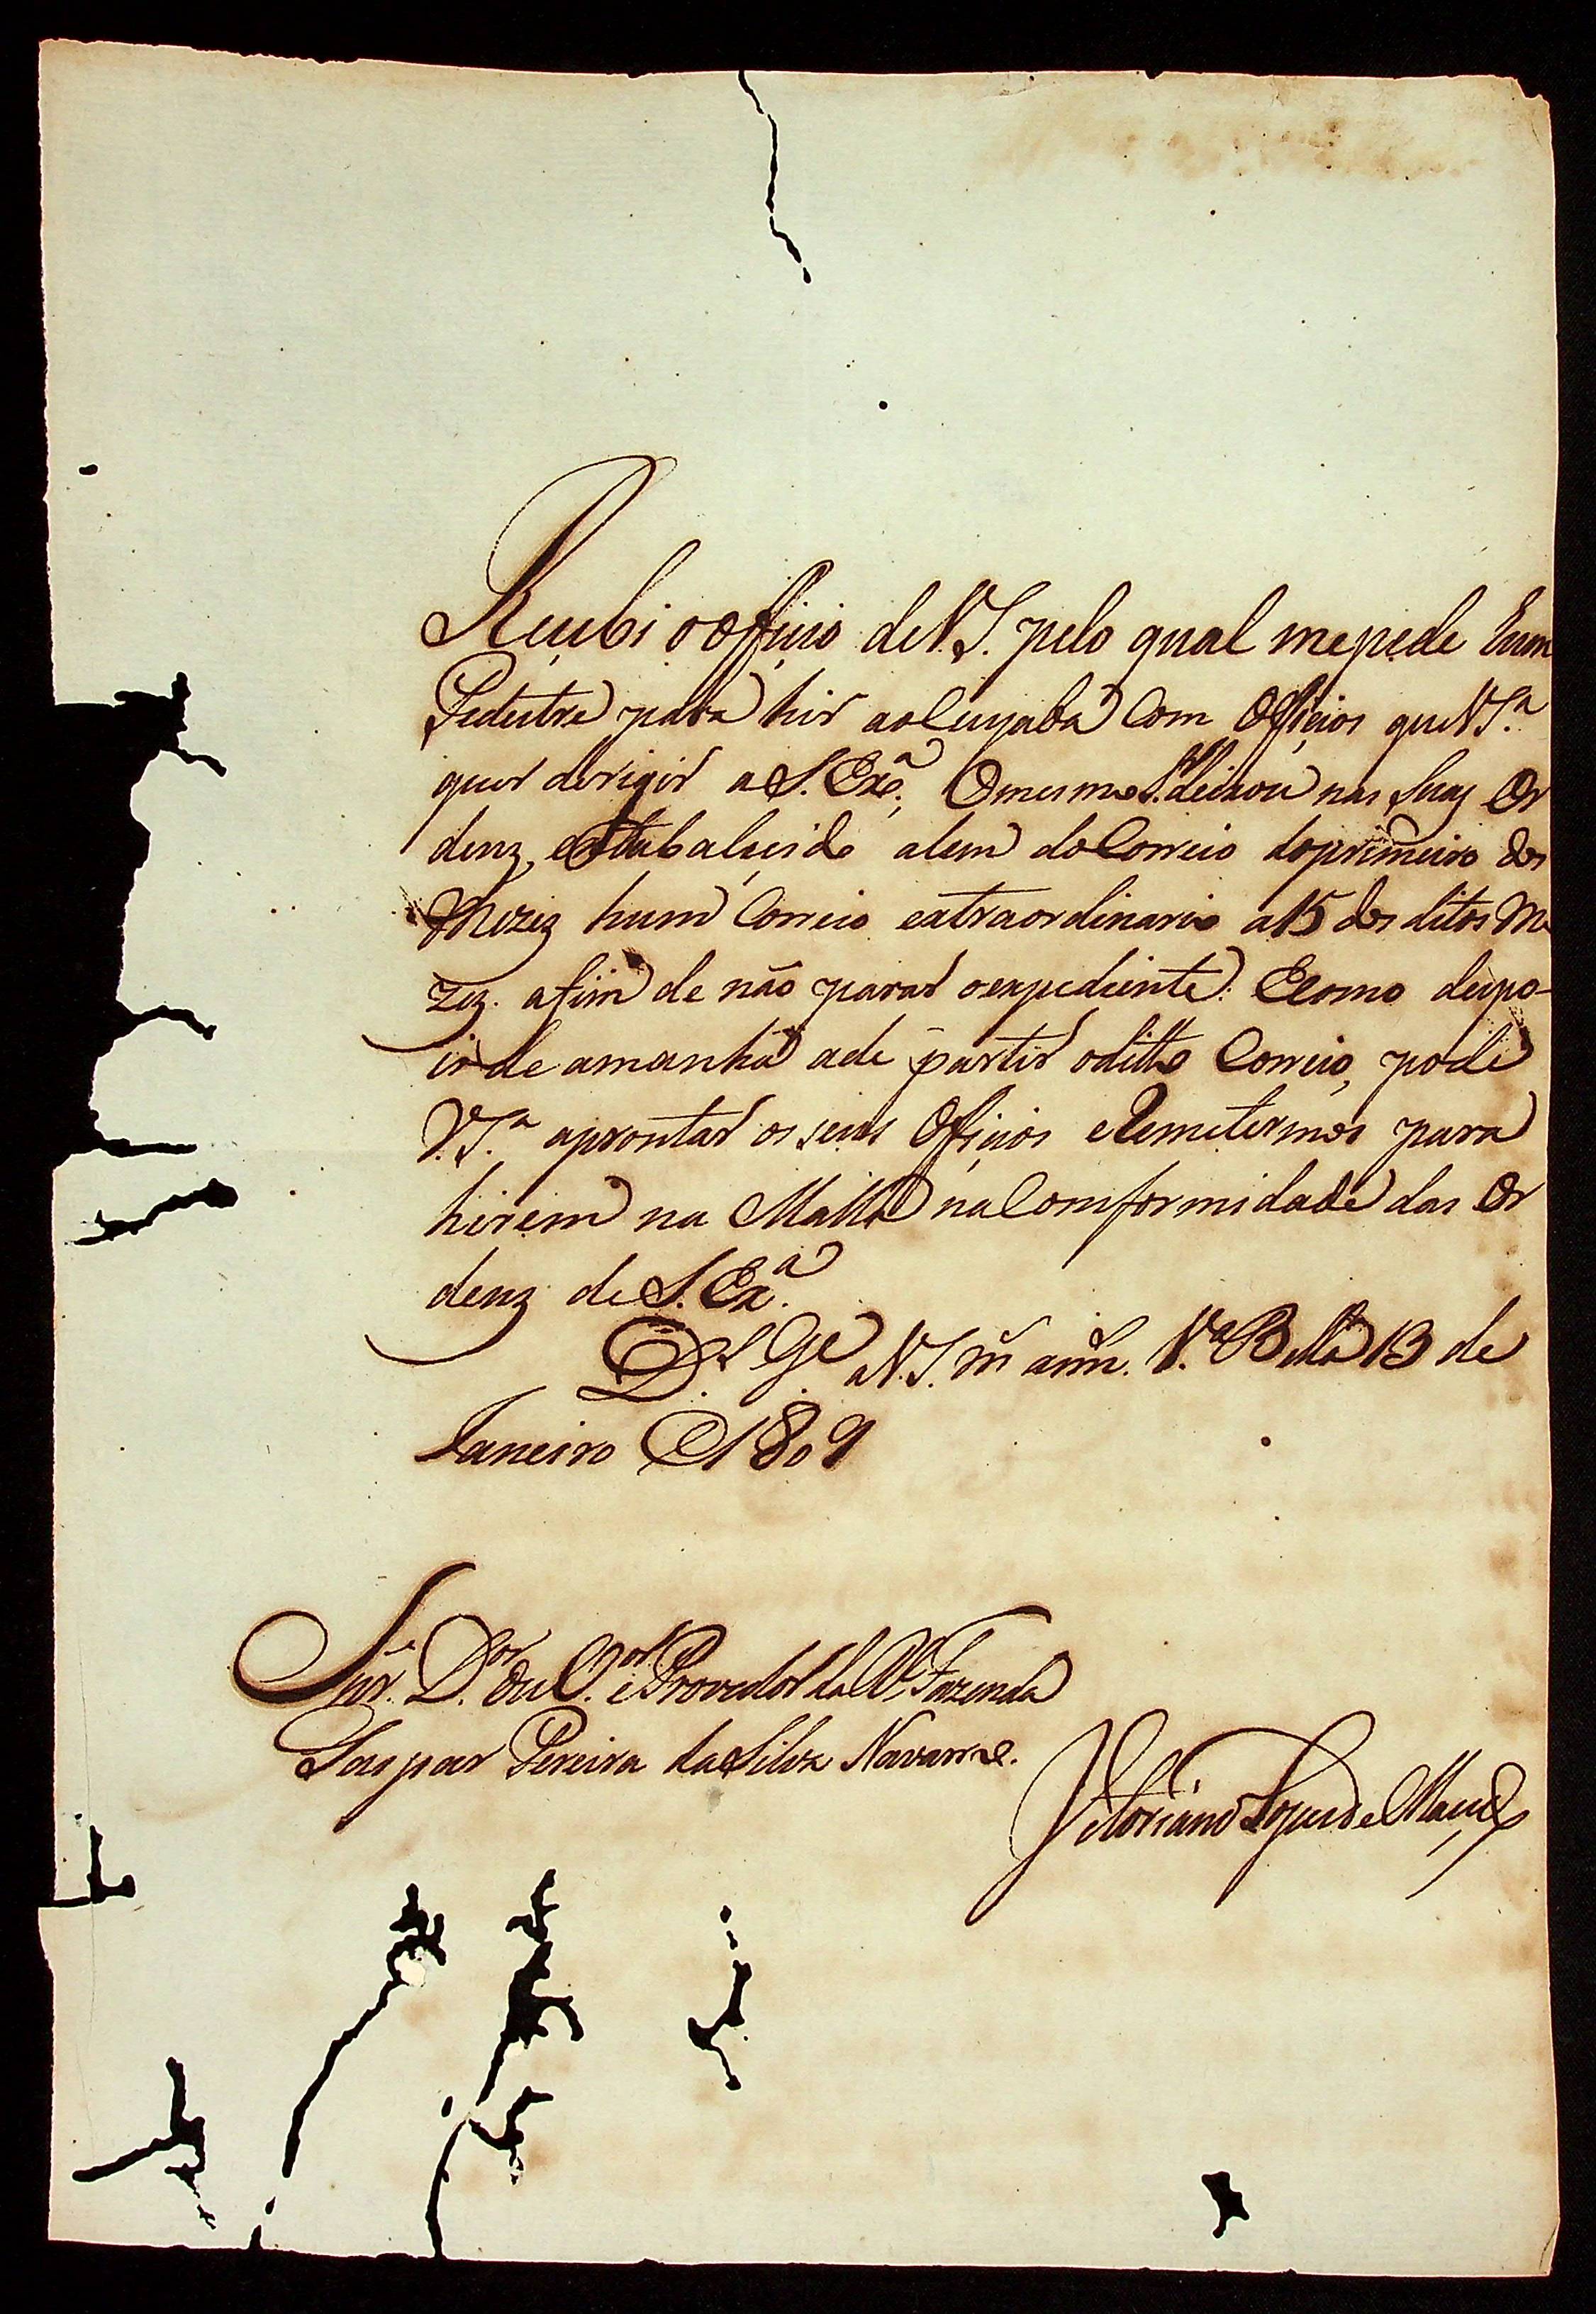 Reçebi o Offiçio de V.S. pelo qual me pede hum
Pedestre para hir ao Cuyaba Com Offiçios que V.S.ª
quer derigir a S. Exª. O mesmo S.r deixou nas suas Or
denz, estabalecido alem do Correio do primeiro dos
Mezez hum Correio extraordinario a 15 dos ditos Me
zez. afim de não parar o expediente. E como depo-
is de amanhã ade partir o ditto Correio, pode
V.S.ª aprontar os seus Offiçios e Remetermos para
hirem na Malla na Comformidade das Or
denz de S. Exª.
D.s G.e a V.S. m.s ann.s V.ª Bella 13 de
Janeiro de 1809
Snr. D.or Ou.or e Provedor da R.l Fazenda
Gaspar Pereira da Silva Navarro.
Vitoriano Lopes de Maced.o